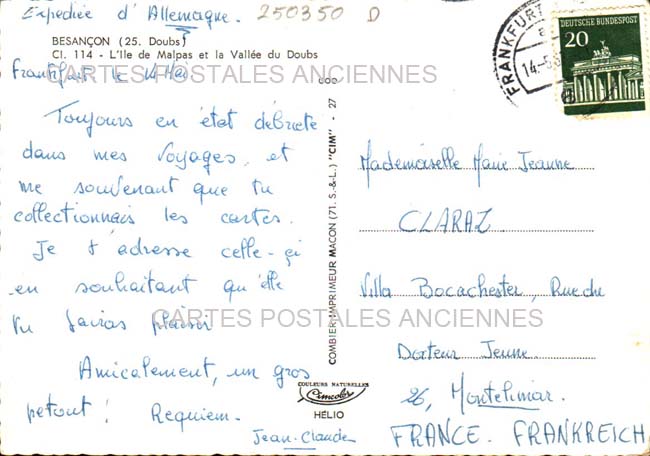 Expediée d'Allemagne. 250350 D
BESANÇON (25. Doubs)
Cl. 114 - L'Ile de Malpas et la Vallée du Doubs
CARTES POSTALES ANCIENNES
Frankfurt le 14 Mai
Toujours en état débriete
dans mes voyages, et
me souvenant que tu
collectionnais les cartes.
Je t'adresse celle-çi
en souhaitant qu'elle
CARTES POSTALES ANCIENNES
Amicalement, un gros
petout! Requiem.
Jean-Claude
COMBIER IMPRIMEUR MACON (71. S.-&-L.) "CIM" - 27
COULEURS NATURELLES
Cimcolor
HÉLIO
FRANKFURT
14-5
DEUTSCHE BUNDESPOST
20
Mademoiselle Marie Jeanne
CLARAZ
Villa Bocachester, Rue du
Docteur Jeune
26, Montelimar.
FRANCE. FRANKREICH